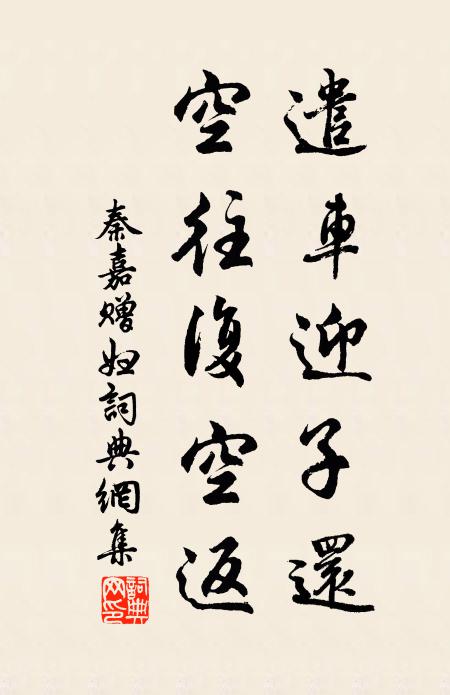 遣車迎子還
空往復空返
秦嘉贈婦詞典網集
詞典网印